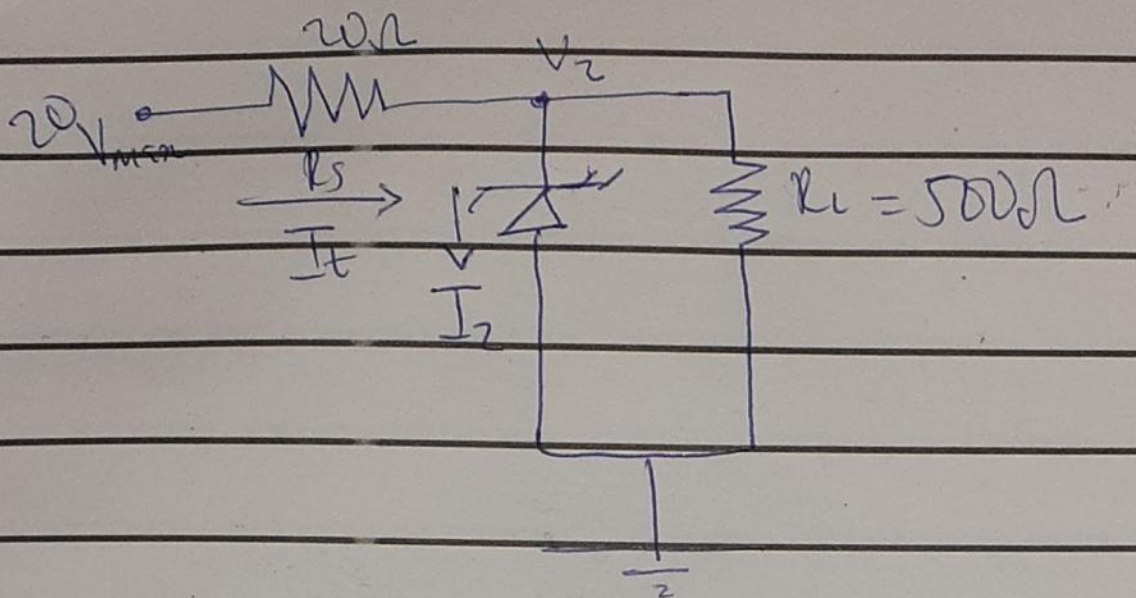 20Ω
V₂
20Vmax
Rs
It
I₂
RL = 500Ω